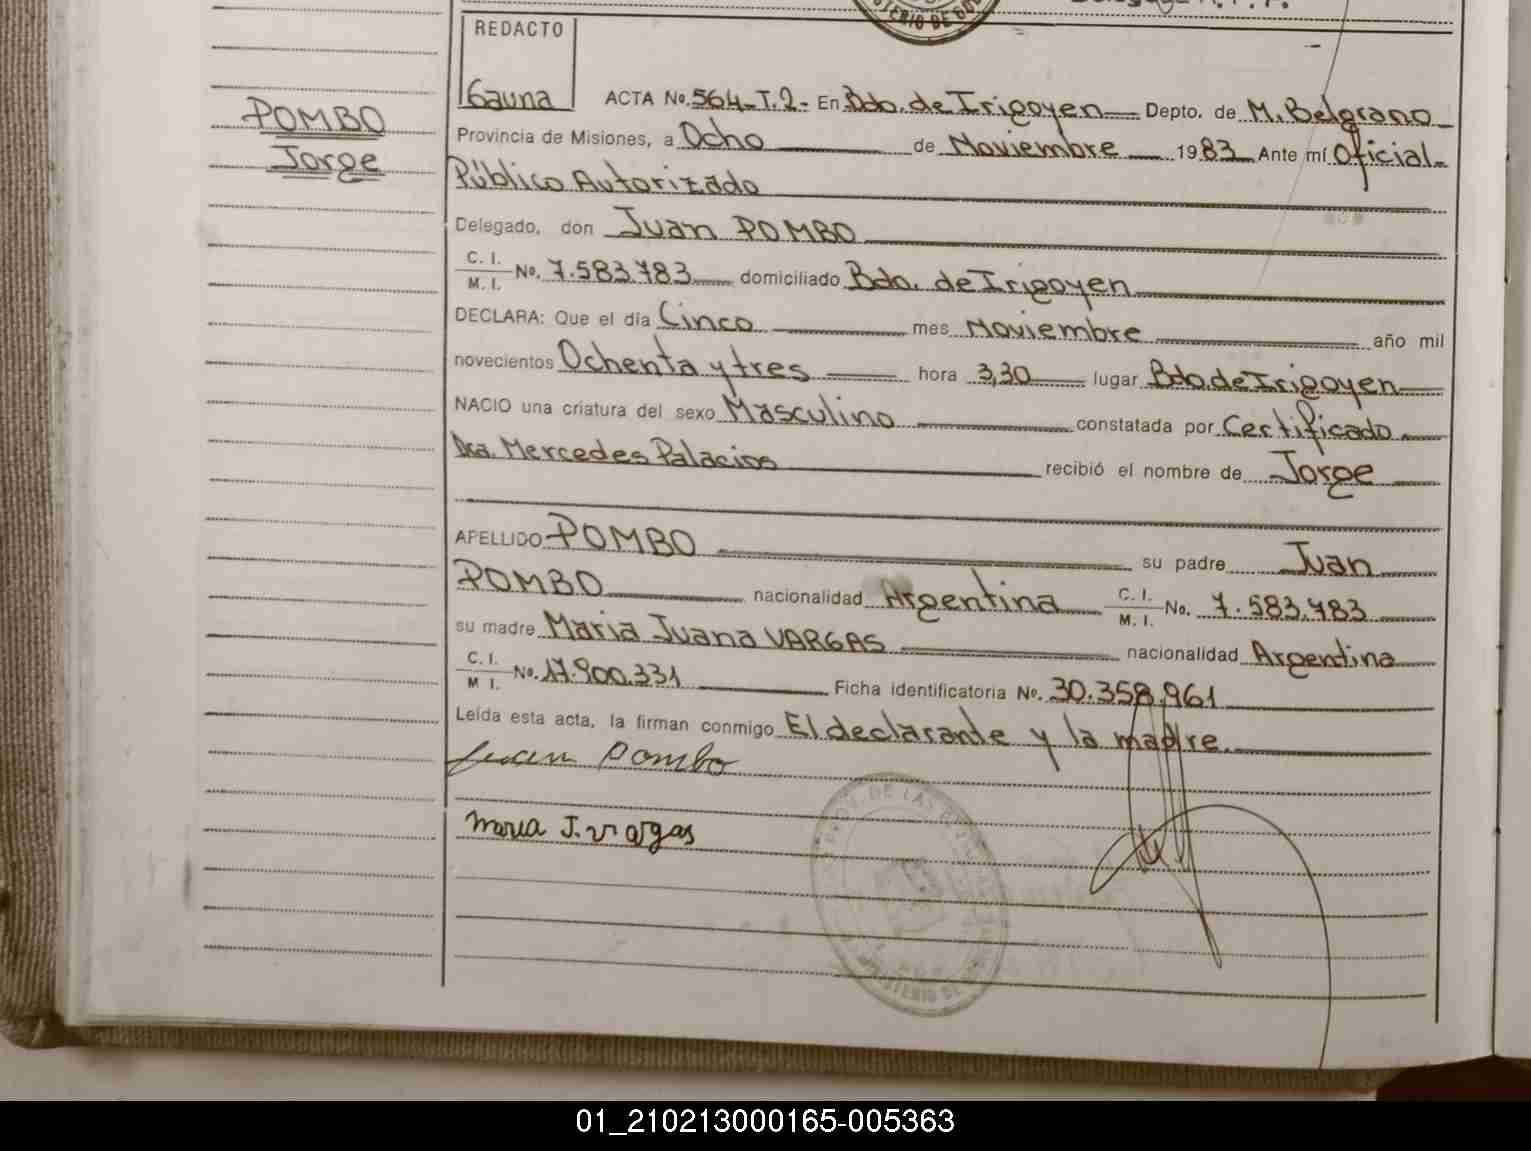 MINISTERIO DE GOB
REDACTO
Gauna
ACTA No. 564-T.2- En Bdo. de Irigoyen Depto. de M. Belgrano
POMBO
Jorge
Provincia de Misiones, a Ocho de Noviembre 1983 Ante mí Oficial
Público Autorizado
Delegado, don Juan POMBO
C. I.
M. I. No. 7.583.783 domiciliado Bdo. de Irigoyen
DECLARA: Que el día Cinco mes Noviembre año mil
novecientos Ochenta y tres hora 3,30 lugar Bdo. de Irigoyen
NACIO una criatura del sexo Masculino constatada por Certificado
Dra. Mercedes Palacios recibió el nombre de Jorge
APELLIDO POMBO su padre Juan
POMBO nacionalidad Argentina C. I.
M. I. No. 7.583.783
su madre Maria Juana VARGAS nacionalidad Argentina
C. I.
M I. No. 17.900.331 Ficha identificatoria No. 30.358.961
Leída esta acta, la firman conmigo El declarante y la madre.
Juan Pombo
Maria J. Vargas
01_210213000165-005363